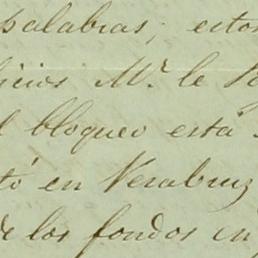 palabras; estos
icios Mr. le
l bloqueo está
tó en Verabruz
de los fondos en